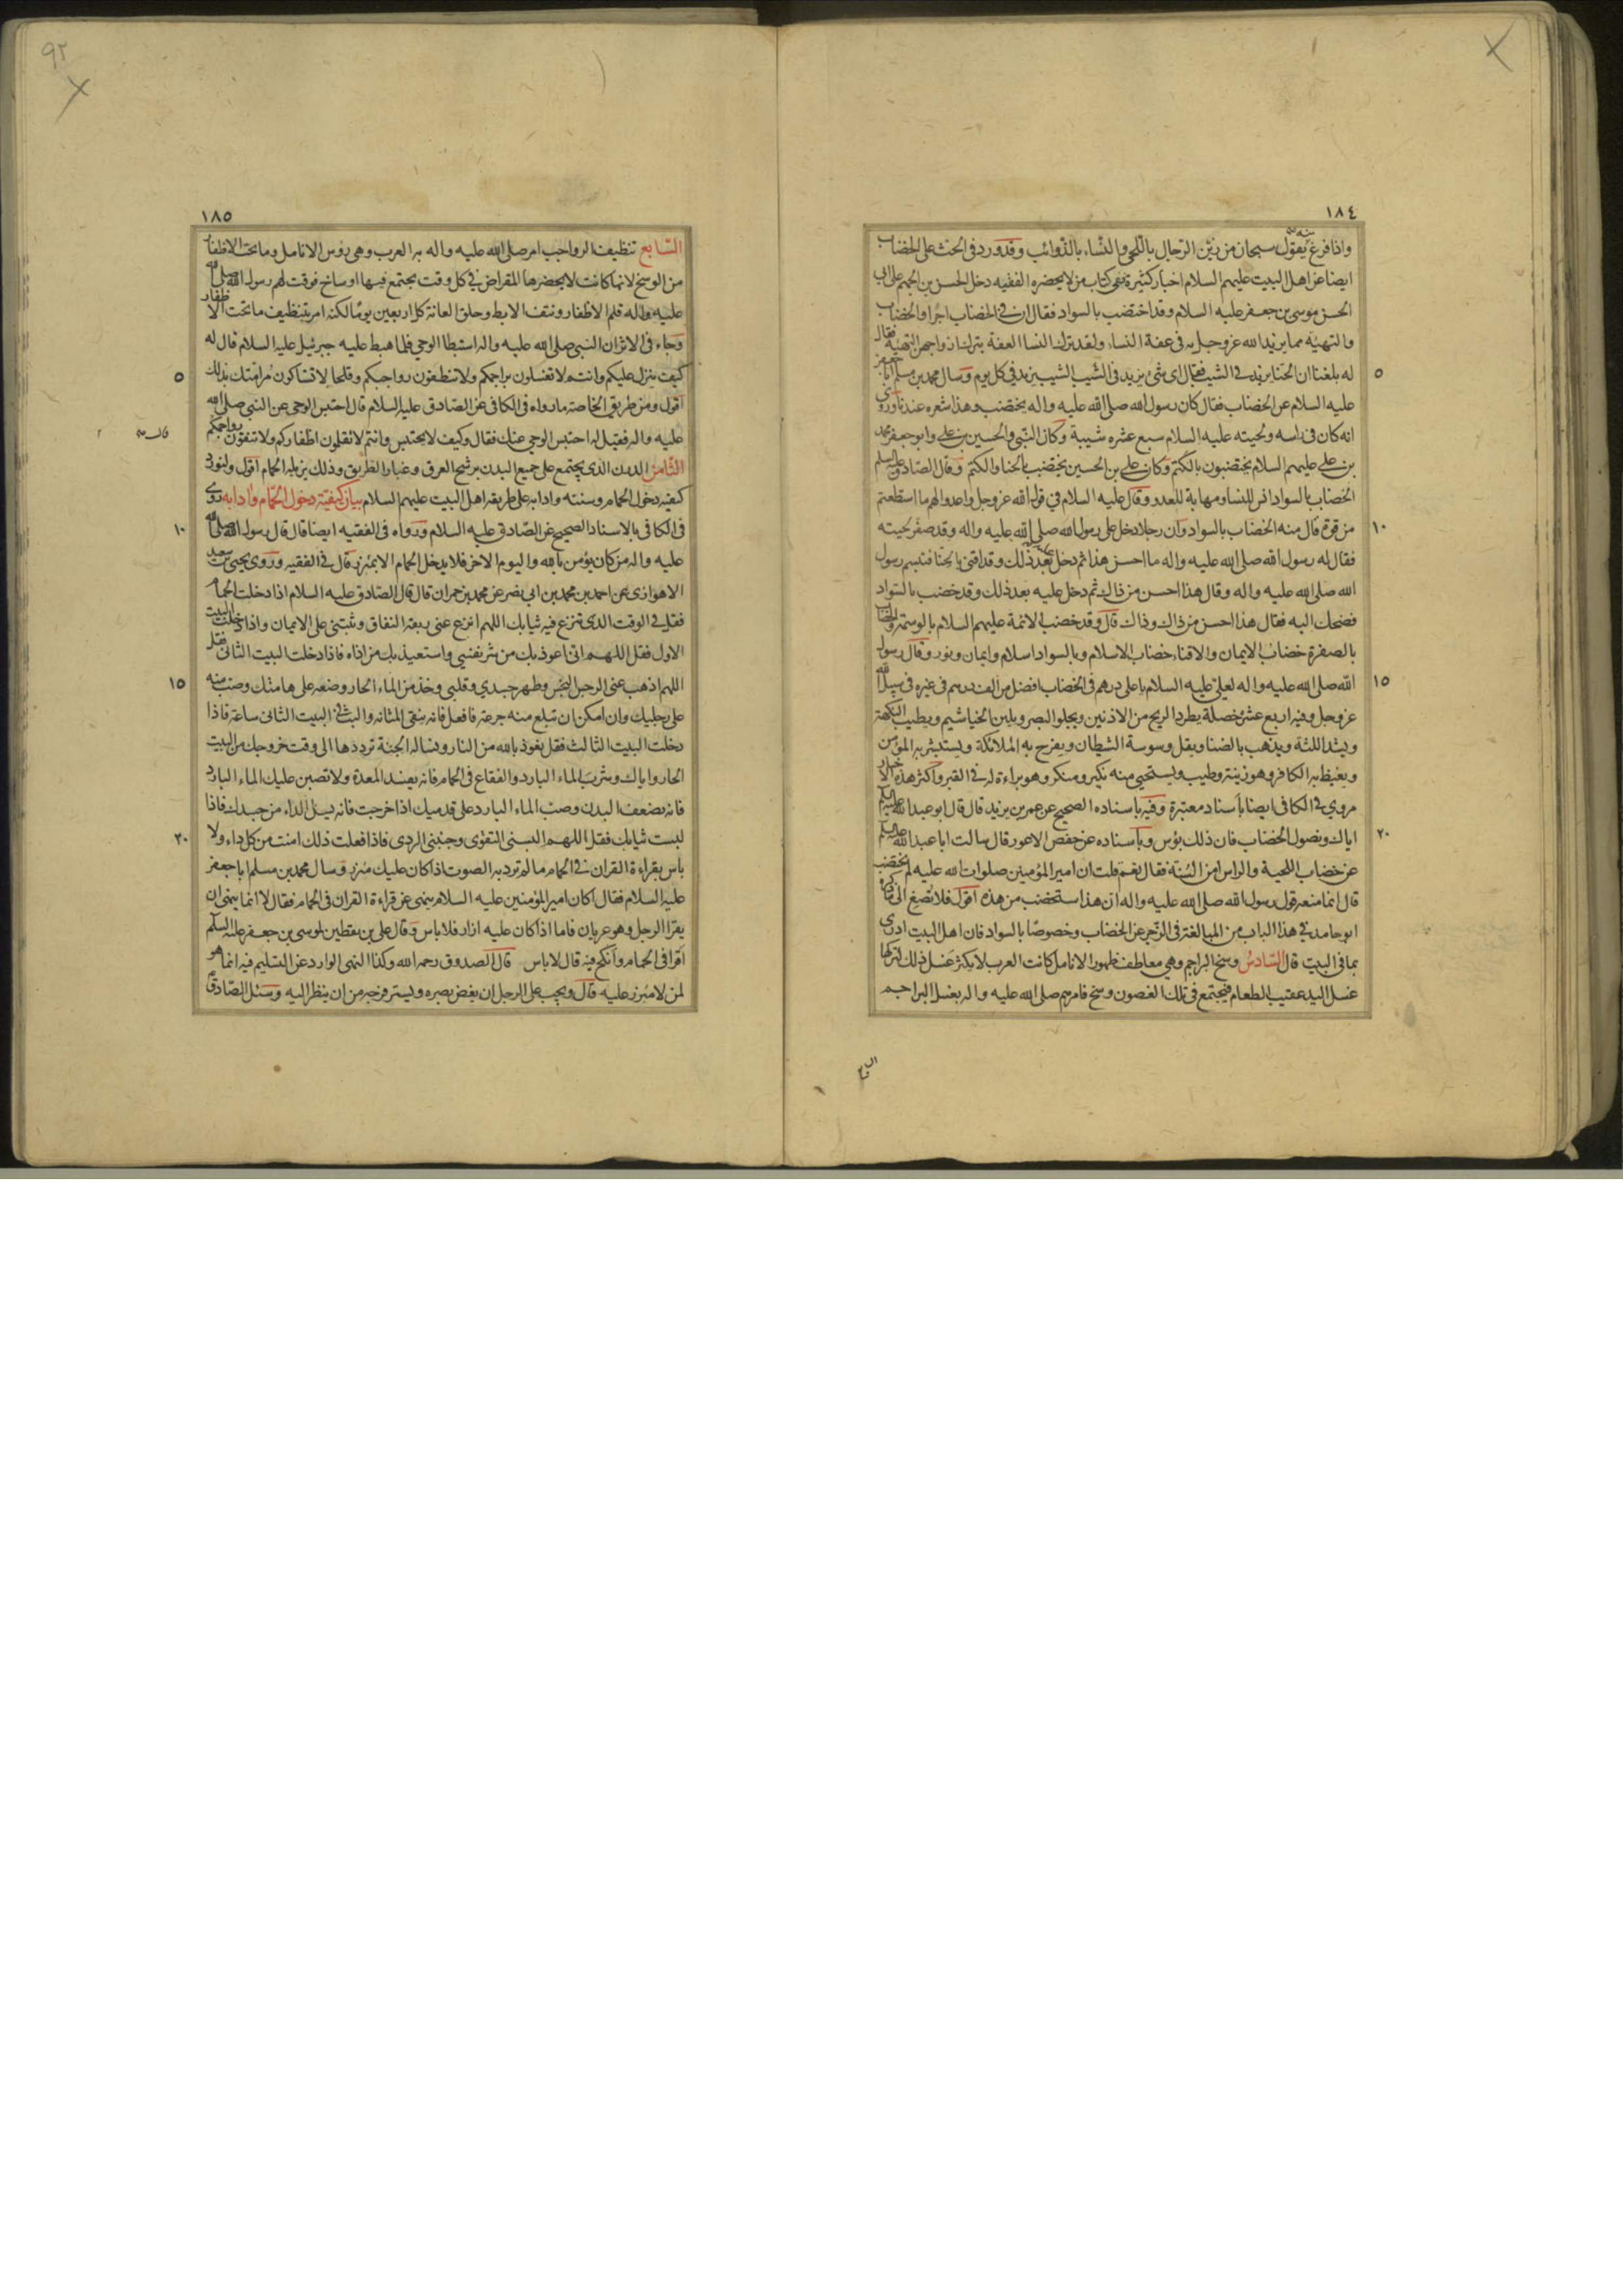 ١٨٤
واذا فرغ منه يقول سبحان من زيّن الرّجال باللّحى والنّساء بالذّوائب وقد ورد فى الحث على الخضاب
ايضا عن اهل البيت عليهم السلام اخبار كثيرة ففى كتاب من لا يحضره الفقيه دخل الحسن بن الجهم على ابى
الحسن موسى بن جعفر عليه السلام وقد اختضب بالسواد فقال ان فى الخضاب اجرا والخضاب
والتهيئة مما يزيد الله عز وجل به فى عفة النساء ولقد ترك النسا العفة بترك ازواجهن التهيئة فقال
له بلغنا ان الحنا يزيد فى الشيب فقال اى شئ يزيد فى الشيب الشيب يزيد فى كل يوم وسال محمد بن مسلم ابا جعفر
عليه السلام عن الخضاب فقال كان رسول الله صلى الله عليه واله يختضب وهذا شعره عندنا وروى
انه كان فى راسه ولحيته عليه السلام سبع عشره شيبة وكان النّبى والحسين بن على وابو جعفر محمد
بن على عليهم السلام يختضبون بالكتم وكان على بن الحسين يختضب بالحنا والكتم وقال الصادق عليه السلم
الخضاب بالسواد انس للنسا ومهابة للعدو وقال عليه السلام فى قول الله عز وجل واعدوا لهم ما استطعتم
من قوة قال منه الخضاب بالسواد وان رجلا دخل على رسول الله صلى الله عليه واله وقد صفر لحيته
فقال له رسول الله صلى الله عليه واله ما احسن هذا ثم دخل عليه بعد ذلك وقد اقنى بالحنا فتبسم رسول
الله صلى الله عليه واله وقال هذا احسن من ذاك ثم دخل عليه بعد ذلك وقد خضب بالسّواد
فضحك اليه فقال هذا احسن من ذاك وذاك قال وقد خضب الائمة عليهم السلام بالوسمة والخضاب
بالصفرة خضاب الايمان والاقناء خضاب الاسلام وبالسواد اسلام وايمان ونور وقال رسول
الله صلى الله عليه واله لعلىّ عليه السلام يا على درهم فى الخضاب افضل من الف درهم فى غيره فى سبيل الله
عز وجل وفيه اربع عشرة خصلة يطرد الريح من الاذنين ويجلو البصر ويلين الخياشيم ويطيب النكهة
ويشد اللثة ويذهب بالضنا ويقل وسوسة الشيطان ويفرح به الملائكة ويستبشر به المؤمن
ويغيظ به الكافر وهو زينة وطيب ويستحيى منه نكير ومنكر وهو براءة له فى القبر واكثر هذه الاخبار
مروى فى الكافى ايضا باسناد معتبرة وفيه باسناده الصحيح عن عمر بن يزيد قال قال ابو عبد الله عليه السلم
اياك ونصول الخضاب فان ذلك بؤس وباسناده عن حفص الاعور قال سالت ابا عبد الله عليه السلم
عن خضاب اللحية والراس امن السّنة فقال نعم قلت ان امير المؤمنين صلوات الله عليه لم يختضب
قال انما منعه قول رسول الله صلى الله عليه واله ان هذا ستخضب من هذه اقول فلا تصغ الى ما ذكره
ابو حامد فى هذا الباب من المبالغة فى الزّجر عن الخضاب وخصوصا بالسواد فان اهل البيت ادرى
بما فى البيت قال السّادس وسخ البراجم وهى معاطف ظهور الانامل كانت العرب لا يكثر غسل ذلك لتركها
غسل اليد عقيب الطعام فيجتمع فى تلك الغضون وسخ فامرهم صلى الله عليه واله بغسل البراجم
٥
١٠
١٥
٢٠
١٨٥
السّابع تنظيف الرواجب امر صلى الله عليه واله به العرب وهى رؤس الانامل وما تحت الاظفار
من الوسخ لانها كانت لا يحضرها المقراض فى كل وقت يجتمع فيها اوساخ فوقت لهم رسول الله صلى الله
عليه واله قلم الاظفار ونتف الابط وحلق العانة كل اربعين يوما لكنه امر بتنظيف ما تحت الاظفار
وجاء فى الاثر ان النبى صلى الله عليه واله استبطا الوحى فلما هبط عليه جبرئيل عليه السلام قال له
كيف ينزل عليكم وانتم لا تغسلون براجمكم ولا تنظفون رواجبكم وقلحا لا تستاكون مر امتك بذلك
اقول ومن طريق الخاصة ما رواه فى الكافى عن الصّادق عليه السلام قال احتبس الوحى عن النبى صلى الله
عليه واله فقيل له احتبس الوحى عنك فقال وكيف لا يحتبس وانتم لا تقلمون اظفاركم ولا تنقون رواجبكم
الثّامن الدرن الذى يجتمع على جميع البدن برشح العرق وغبار الطريق وذلك يزيله الحمام اقول ولنورد
كيفية دخول الحمام وسننه وادابه على طريقة اهل البيت عليهم السلام بيان كيفيّة دخول الحمّام وادابه روى
فى الكافى بالاسناد الصحيح عن الصّادق عليه السلام ورواه فى الفقيه ايضا قال قال رسول الله صلى الله
عليه واله من كان يؤمن بالله واليوم الاخر فلا يدخل الحمام الا بمئزر قال فى الفقيه وروى يحيى بن سعيد
الاهوازى عن احمد بن محمد بن ابى نصر عن محمد بن حمران قال قال الصّادق عليه السلام اذا دخلت الحمام
فقل فى الوقت الذى تنزع فيه ثيابك اللهم انزع عنى ربقة النفاق وثبّتنى على الايمان واذا دخلت البيت
الاول فقل اللهم انى اعوذ بك من شر نفسى واستعيذ بك من اذاه فاذا دخلت البيت الثانى فقل
اللهم اذهب عنى الرجس النجس وطهر جسدى وقلبى وخذ من الماء الحار وضعه على هامتك وصب منه
على رجليك وان امكن ان تبلع منه جرعة فافعل فانه ينقى المثانة والبث فى البيت الثانى ساعة فاذا
دخلت البيت الثالث فقل نعوذ بالله من النار ونساله الجنة ترددها الى وقت خروجك من البيت
الحار واياك وشرب الماء البارد والفقاع فى الحمام فانه يفسد المعدة ولا تصبن عليك الماء البارد
فانه يضعف البدن وصب الماء البارد على قدميك اذا خرجت فانه يسل الداء من جسدك فاذا
لبست ثيابك فقل اللهم البسنى التقوى وجنبنى الردى فاذا فعلت ذلك امنت من كل داء ولا
باس بقراءة القران فى الحمام ما لم ترد به الصوت اذا كان عليك مئزر وسال محمد بن مسلم ابا جعفر
عليه السلام فقال اكان امير المؤمنين عليه السلام ينهى عن قراءة القران فى الحمام فقال لا انما ينهى ان
يقرا الرجل وهو عريان فاما اذا كان عليه ازار فلا باس وقال على بن يقطين لموسى بن جعفر عليه السلم
اقرا فى الحمام وانكح فيه قال لا باس قال الصدوق رحمه الله وكذا النهى الوارد عن التسليم فيه انما هو
لمن لا مئزر عليه قال ويجب على الرجل ان يغض بصره ويستر فرجه من ان ينظر اليه وسئل الصّادق
٥
١٠
١٥
٢٠
٩٢